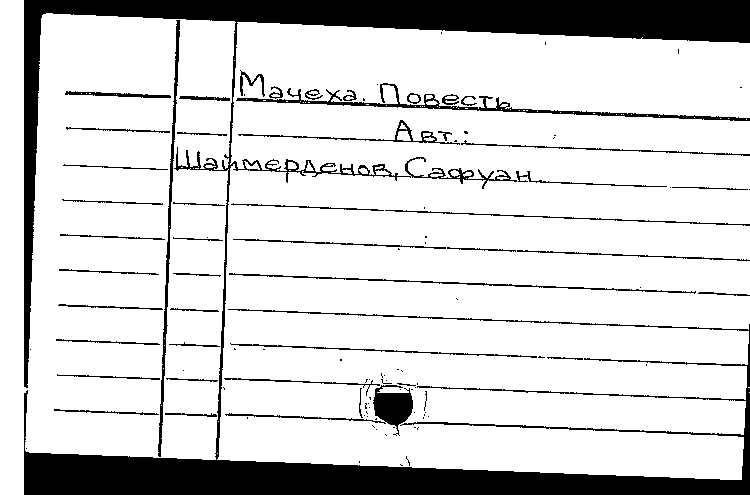 Мачеха. Повесть
Авт.:
Шаймерденов, Сафуан.